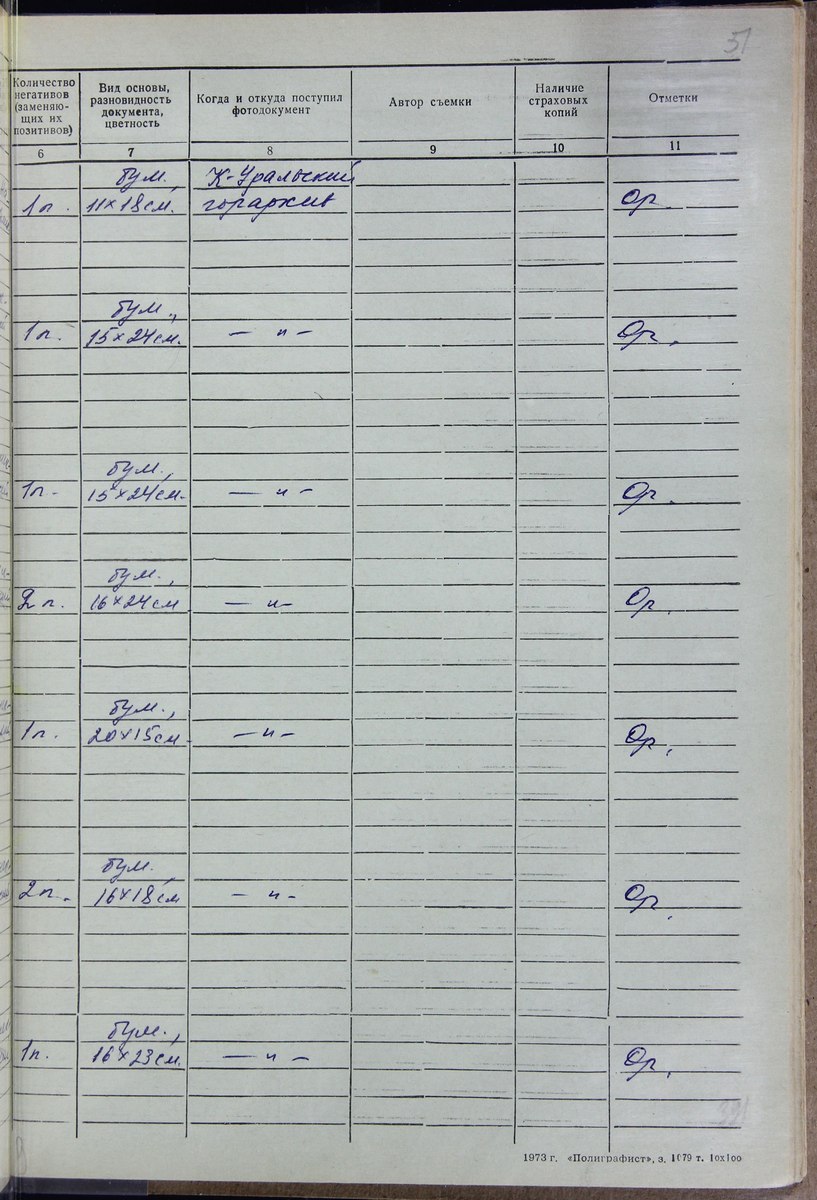 Количество негативов (заменяю- щих их позитивов)
Вид основы, разновидность документа, цветность
Когда и откуда поступил фотодокумент
Автор съемки
Наличие страховых копий
Отметки
6 7 8 9 10 11
бум., К-Уральский
1п. 11×18см. горархив Ор.
бум.,
1п. 15×24см. — и — Ор.
бум.,
1п. 15×24см. — и — Ор.
бум.,
2п. 16×24см — и — Ор.
бум.,
1п. 20×15см. — и — Ор.
бум.,
2п. 16×18см — и — Ор.
бум.,
1п. 16×23см. — и — Ор.
1973 г. «Полиграфист», з. 1079 т. 10х100